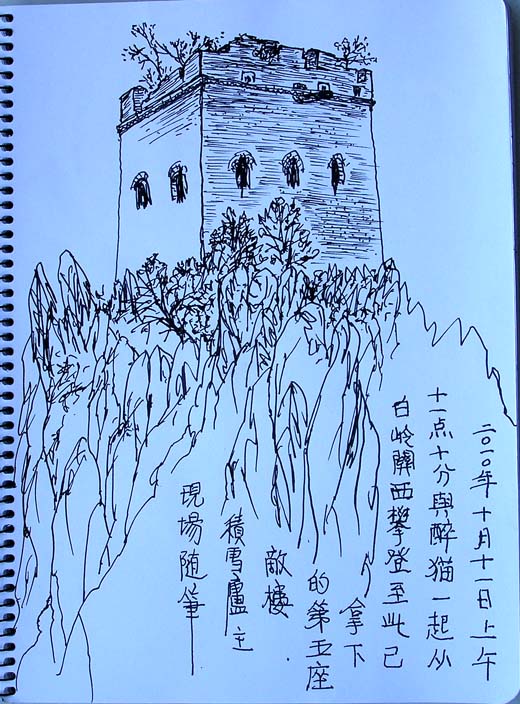 二〇一〇年十月十一日上午
十一点十分與醉猫一起从
白岭關西攀登至此已
拿下
的第五座
敵樓
積雪廬主
現場随筆